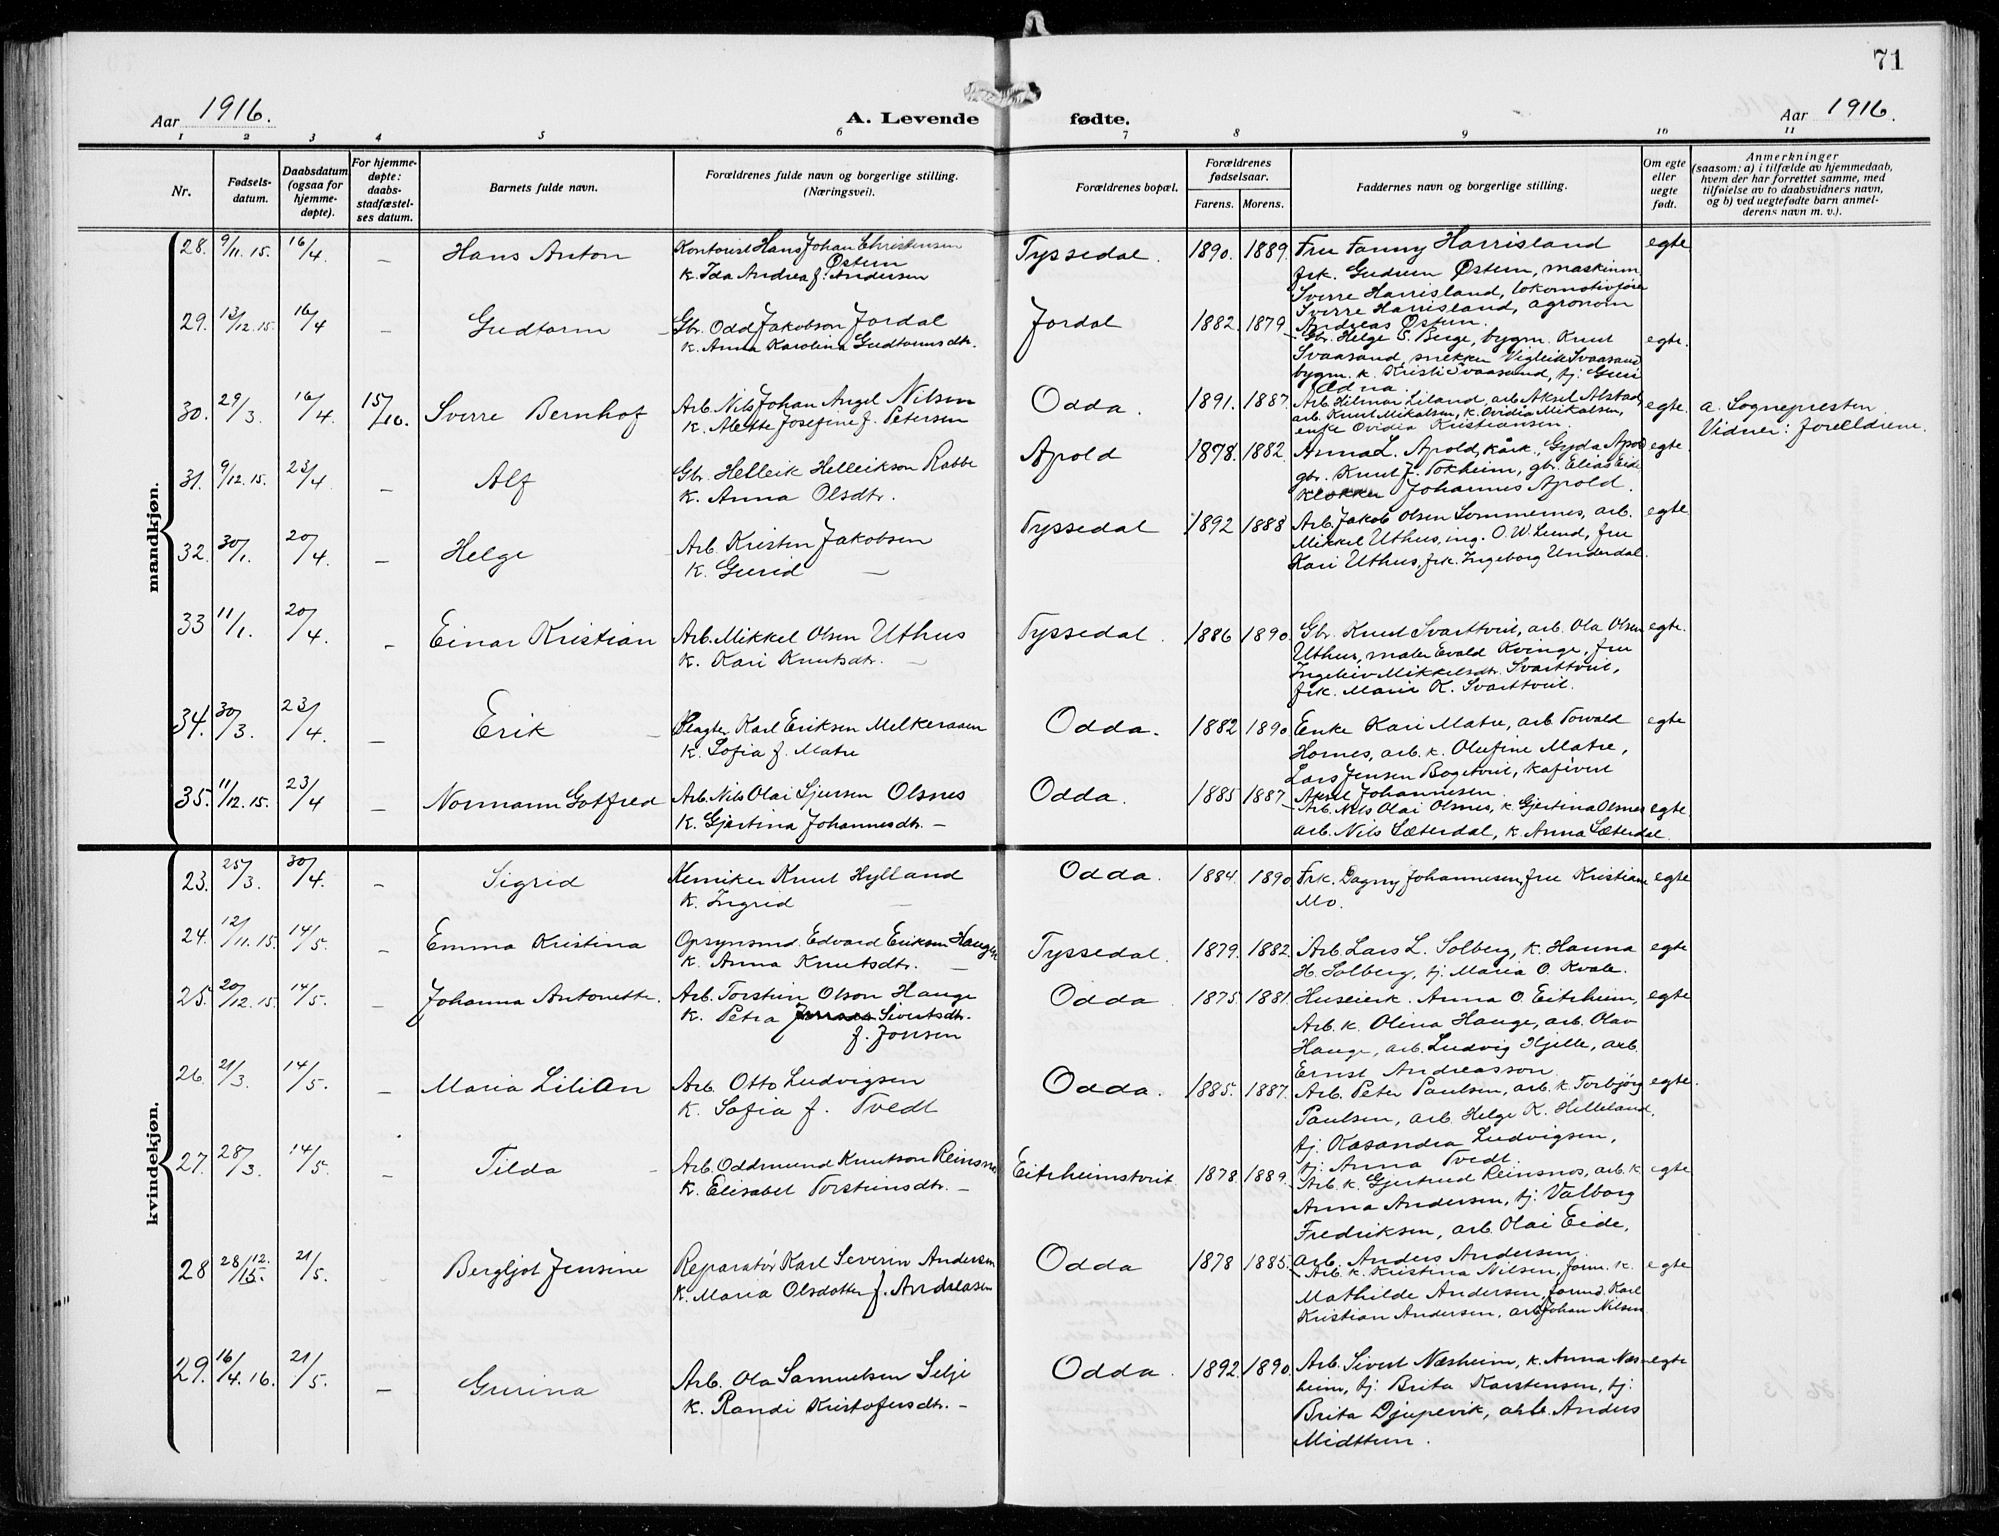 71
Aar 1916.
A. Levende fødte.
Aar 1916.
1 2 3 4 5 6 7 8 9 10 11
Nr.
Fødsels-
datum.
Daabsdatum
(ogsaa for
hjemme-
døpte).
For hjemme-
døpte:
daabs-
stadfæstel-
ses datum.
Barnets fulde navn.
Forældrenes fulde navn og borgerlige stilling.
(Næringsvei).
Forældrenes bopæl.
Forældrenes
fødselsaar.
Farens. Morens.
Faddernes navn og borgerlige stilling.
Om egte
eller
uegte
født.
Anmerkninger
(saasom: a) i tilfælde av hjemmedaab,
hvem der har forrettet samme, med
tilføielse av to daabsvidners navn,
og b) ved uegtefødte barn anmel-
derens navn m. v.).
mandkjøn.
28. 9/11. 15. 16/4 – Hans Anton Kontorist Hans Johan Christensen Tyssedal. 1890. 1889. Fru Fanny Harrisland egte
Østern
k. Ida Andrea f. Andersen
frk. Gudrun Østern, maskinm.
Sverre Harrisland, lokomotivfører
29. 13/12. 15. 16/4 – Gudtorm Gbr. Odd Jakobson Jordal Jordal 1882. 1879 Sverre Harrisland, agronom
Andreas Østern.
k. Anna Karolina Gudtormsdtr.
Gbr. Helge S. Berge, bygm. Knut egte.
Svaasand, snekker Vigleik Svaasand
bygm. k. Kristi Svaasand, tj. Guri
Ædna.
30. 29/3. 16/4. 15/10. Sverre Bernhof Arb. Nils Johan Angel Nilsen Odda. 1891. 1887. Arb. Hilmar Liland, arb. Aksel Alstad, egte. a. Sognepresten.
k. Alette Josefine f. Petersen
arb. Knut Mikalsen, k. Ovidia Mikalsen,
enke Ovidia Kristiansen.
Vidner: forældrene.
31. 9/12. 15. 23/4 – Alf Gbr. Helleik Helleikson Rabbe Apold 1878. 1882. Anna L. Apold, kårk., Gyda Apold egte.
k. Anna Olsdtr.
gbr. Knut J. Tokheim, gbr. Elias Eide
klokker Johannes Apold.
32. 30/1. 20/4 – Helge Arb. Kristen Jakobsen Tyssedal 1892 1888 Arb. Jakob Olsen Sommernes, arb. egte
k. Gurid –
Mikkel Uthus, ing. O. W. Lund, fru
Kari Uthus, frk. Ingeborg Underdal.
33 11/1. 20/4. – Einar Kristian Arb. Mikkel Olsen Uthus Tyssedal. 1886 1890. Gbr. Knut Svarttveit, arb. Ola Olsen egte.
k. Kari Knutsdtr. –
Uthus, maler Evald Kvinge, fru
Ingeleiv Mikkelsdtr. Svarttveit,
frk. Marie K. Svarttveit.
34. 30/3. 23/4. – Erik – Slagter Karl Eriksen Melkeraaen Odda. 1882 1890 Enke Kari Matre, arb. Torvald egte
k. Sofia f. Matre
Hornes, arb. k. Olufine Matre,
Lars Jensen Bogetveit, kafévert
35. 11/12. 15. 23/4 – Normann Gotfred Arb. Nils Olai Sjursen Olsnes Odda. 1885 1887 Aksel Johannesen.
k. Gjertina Johannesdtr. –
Arb. Nils Olai Olsnes, k. Gjertina Olsnes egte
arb. Nils Sæterdal, k. Anna Sæterdal.
kvindekjøn.
23. 25/3. 30/4. – Sigrid Kemiker Knut Hylland Odda. 1884. 1890 Frk. Dagny Johannesen, fru Kristiane egte
k. Ingrid –
Mo.
24. 12/11. 15. 14/5. – Emma Kristina Opsynsmd. Edvard Eriksen Haugen Tyssedal. 1879. 1882. Arb. Lars L. Solberg, k. Hanna egte
k. Anna Knutsdtr. –
H. Solberg, tj. Maria O. Kvale.
25. 20/12. 15. 14/5. – Johanna Antonette. Arb. Torstein Olson Hauge Odda 1875. 1881. Huseierk. Anna O. Eitrheim, egte
k. Petra Sivertsdtr.
f. Jonsen
Arb. k. Olina Hauge, arb. Olav
Hauge, arb. Ludvig Kjelle, arb.
Ernst Andreasson.
26. 21/3. 14/5. – Maria Lilian Arb. Otto Ludvigsen Odda. 1885. 1887. Arb. Peter Paulsen, arb. k. Torbjørg egte.
k. Sofia f. Tvedt
Paulsen, arb. Helge K. Helleland,
tj. Kasandra Ludvigsen,
tj. Anna Tvedt.
27. 28/3. 14/5. – Tilda – Arb. Oddmund Knutson Reinsnos Eitrheimstveit. 1878. 1889. Arb. k. Gjertrud Reinsnos, arb. k. egte
k. Elisabet Torsteinsdtr. –
Anna Andersen, tj. Valborg
Fredriksen, arb. Olai Eide,
arb. Anders Andersen.
28 28/12. 15. 21/5. Bergljot Jensine Reparatør Karl Severin Andersen Odda 1878 1885. Arb. k. Kristina Nilsen, form. k. egte
k. Maria Olsdotter f. Andreasen
Mathilde Andersen, formd. Karl
Kristian Andersen, arb. Johan Nilsen
29. 16/4. 16. 21/5. – Gurina Arb. Ola Samuelsen Selje Odda. 1892. 1890. Arb. Sivert Næsheim, k. Anna Næs- egte
k. Randi Kristofersdtr. –
heim, tj. Brita Karstensen, tj.
Brita Djupevik, arb. Anders
Midttun.